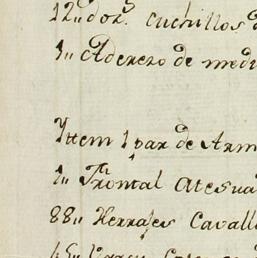 12,, doz.s cuchillos d
1,, Aderezo de medi
Yttem 1 par de Arm
1,, Frontal atesua
88,, Herrajes Cavalla